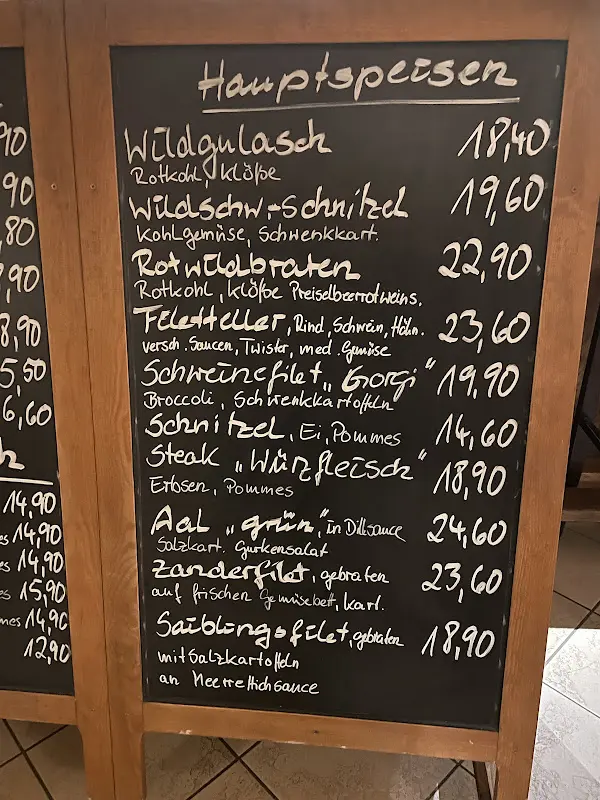 Hauptspeisen
Wildgulasch 18,40
Rotkohl, Klöße
Wildschw.-Schnitzel 19,60
Kohlgemüse, Schwenkkart.
Rotwildbraten 22,90
Rotkohl, Klöße Preiselbeerrotweins.
Filetteller, Rind, Schwein, Hähn. 23,60
versch. Saucen, Twister, med. Gemüse
Schweinefilet „Gorgi" 19,90
Broccoli, Schwenkkartoffeln
Schnitzel, Ei, Pommes 14,60
Steak „Würzfleisch" 18,90
Erbsen, Pommes
Aal „grün", in Dillsauce 24,60
Salzkart. Gurkensalat
Zanderfilet, gebraten 23,60
auf frischen Gemüsebett, Kart.
Saiblingsfilet, gebraten 18,90
mit Salzkartoffeln
an Meerrettichsauce
90
90
,80
,90
8,90
5,50
6,60
14,90
14,90
14,90
15,90
14,90
12,90